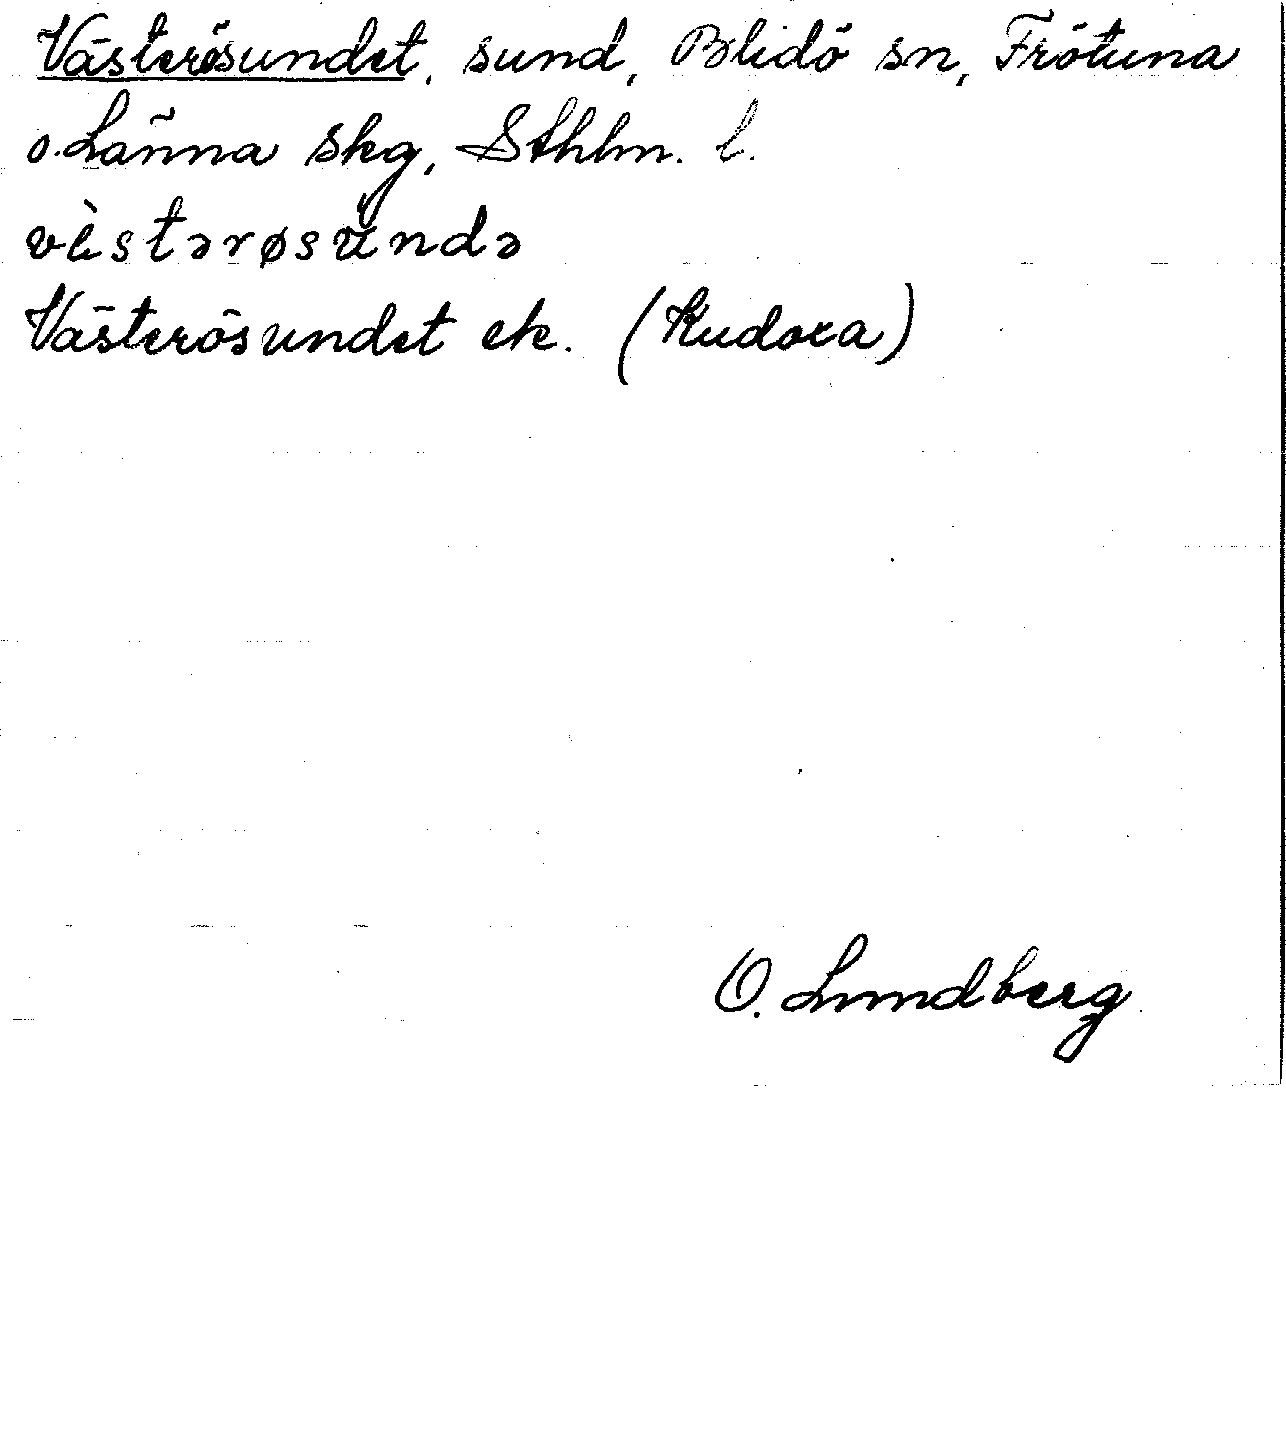 Västerösundet, sund, Blidö sn, Frötuna
o. Länna skg, Sthlm. l.
vɛ̀stərøsündə
Västerösundet ek. (Rudoxa)
O. Lundberg